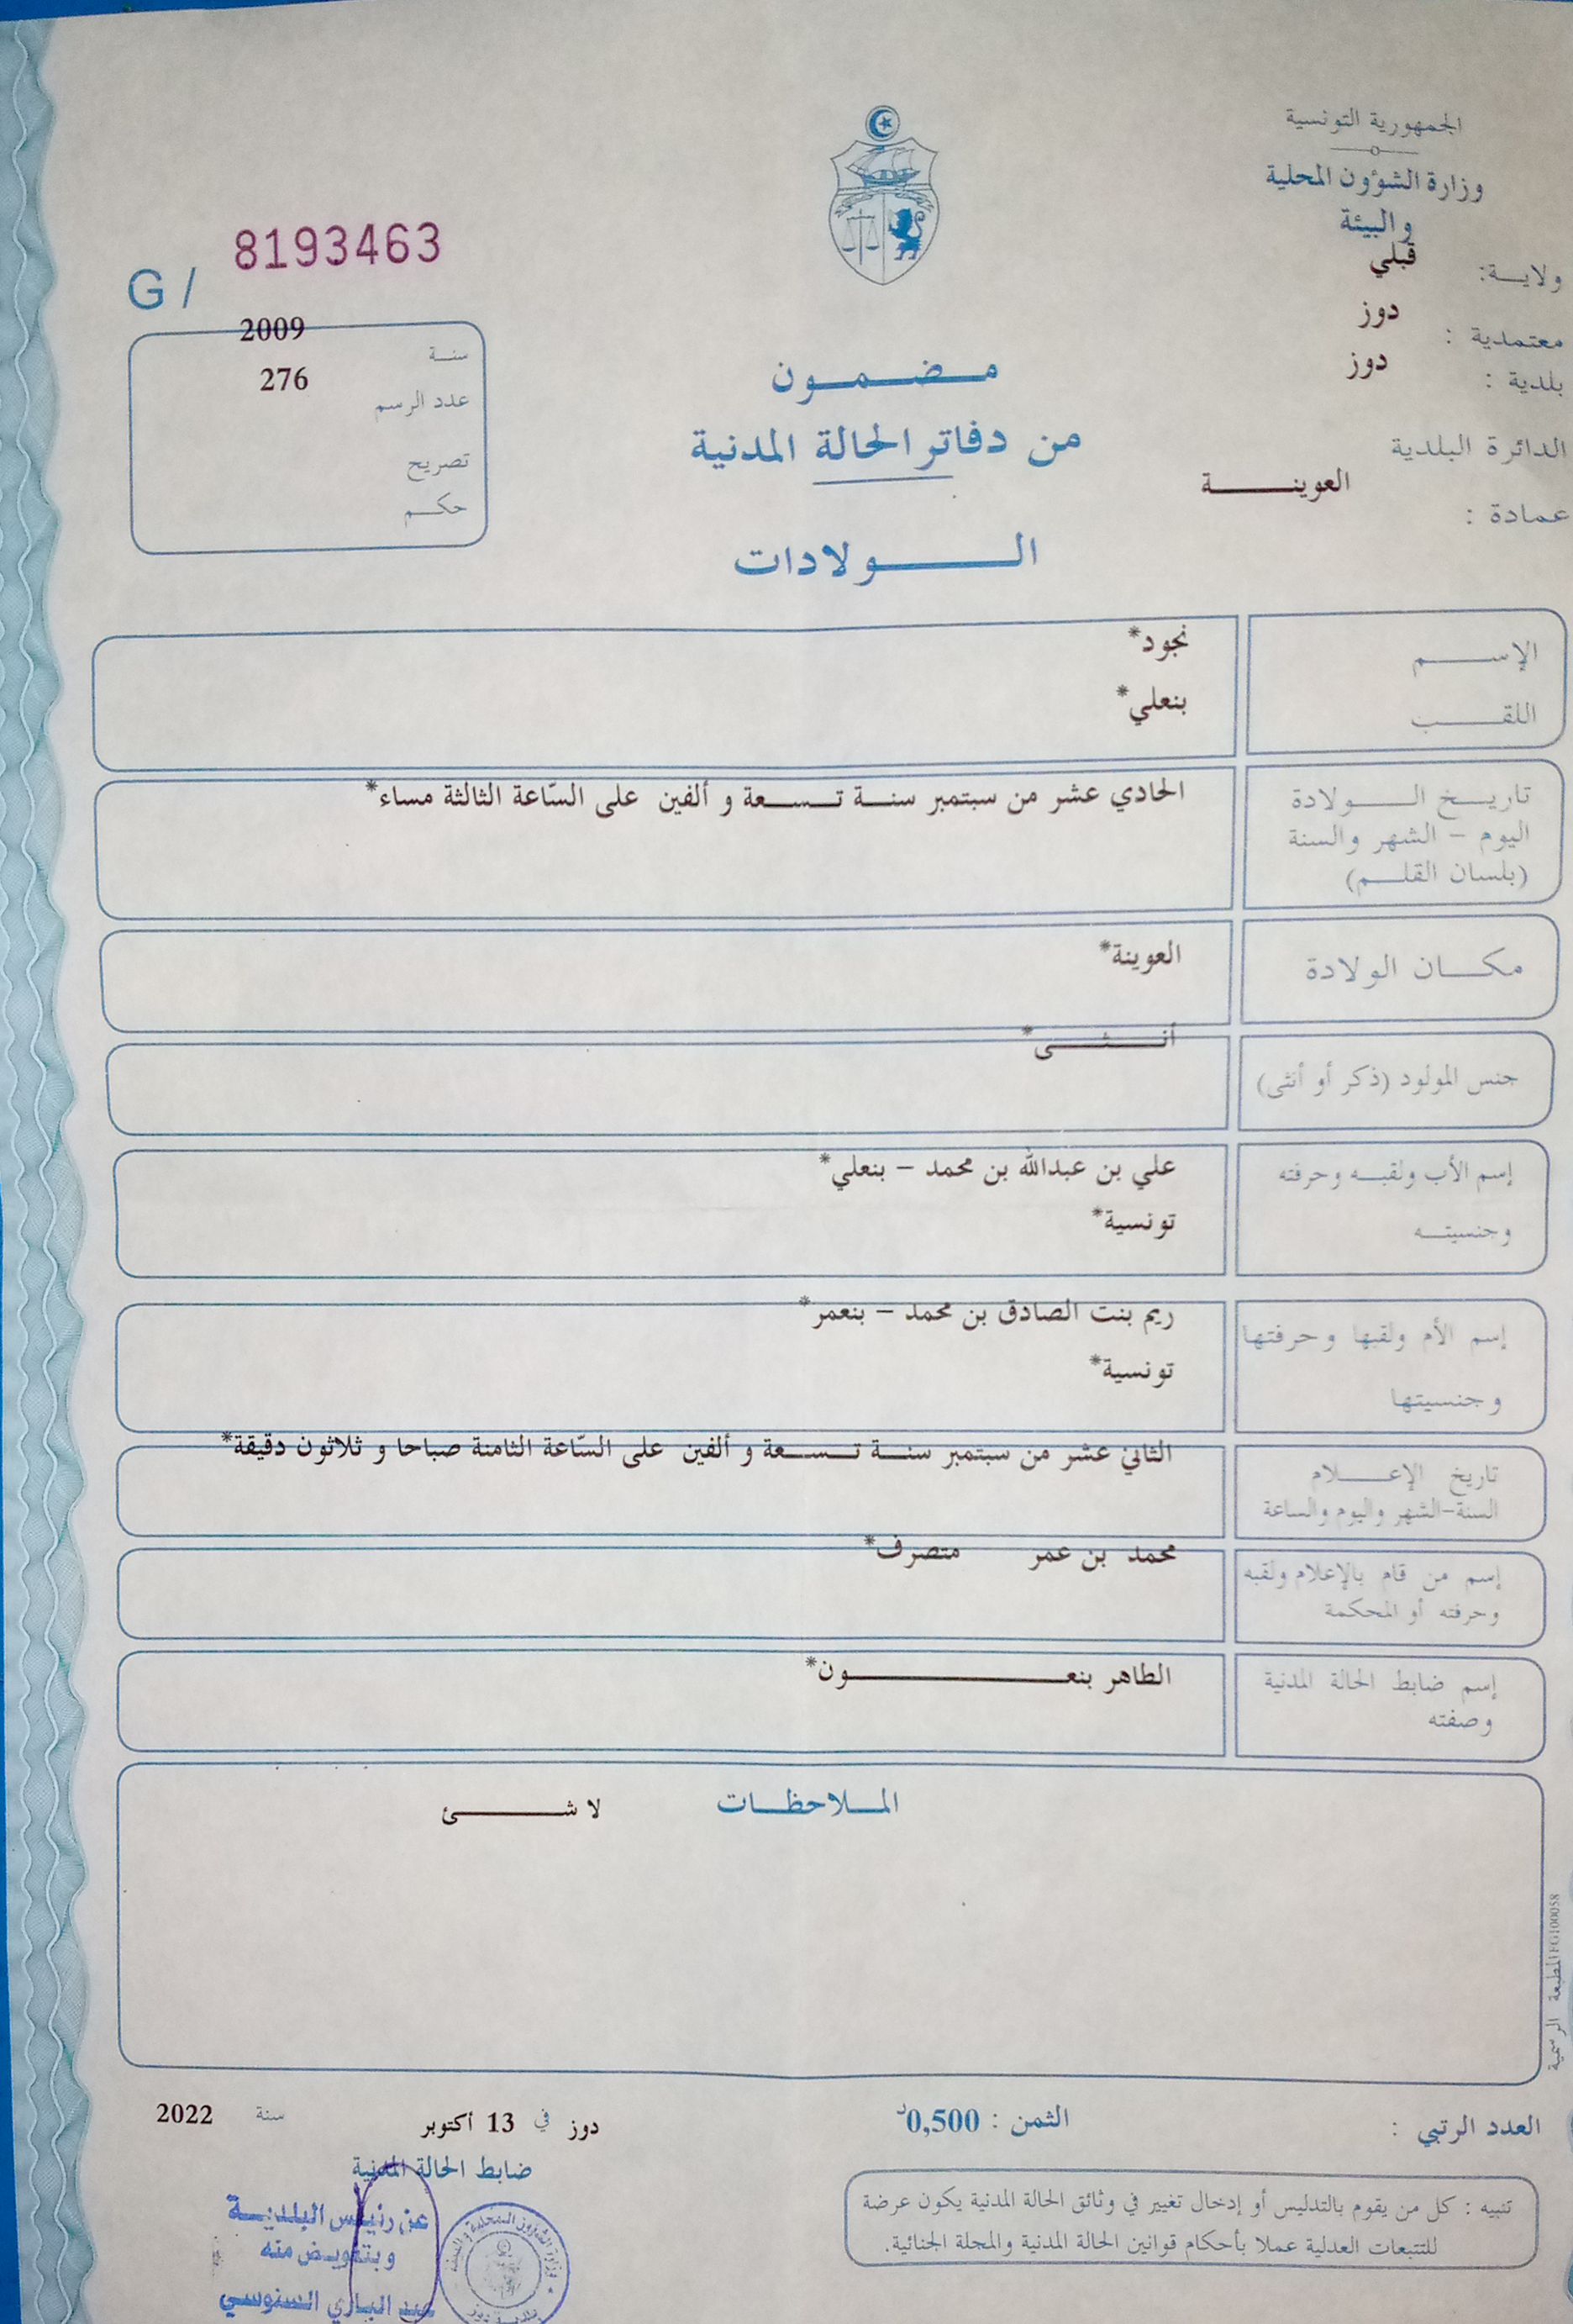 الجمهورية التونسية
وزارة الشؤون المحلية
والبيئة
ولايـــة: قبلي
معتمدية : دوز
بلدية : دوز
الدائرة البلدية
عمادة : العوينــــــة
G / 8193463
سنــة 2009
عدد الرسم 276
تصريح
حكــم
مــضــمــون
من دفاتر الحالة المدنية
الــــــولادات
الإســـــم نجود*
اللقـــــب بنعلي*
تاريــخ الــــولادة الحادي عشر من سبتمبر سنــة تــســعة و ألفين على السّاعة الثالثة مساء*
اليوم – الشهر والسنة
(بلسان القلـــم)
مكــــان الولادة العوينة*
جنس المولود (ذكر أو أنثى) أنــــثــــى*
إسم الأب ولقبــه وحرفته علي بن عبدالله بن محمد – بنعلي*
وجنسيتــه تونسية*
إسم الأم ولقبها وحرفتها ريم بنت الصادق بن محمد – بنعمر*
وجنسيتها تونسية*
تاريخ الإعــــلام الثاني عشر من سبتمبر سنــة تــســعة و ألفين على السّاعة الثامنة صباحا و ثلاثون دقيقة*
السنة-الشهر واليوم والساعة
إسم من قام بالإعلام ولقبه محمد بن عمر متصرف*
وحرفته أو المحكمة
إسم ضابط الحالة المدنية الطاهر بنعــــــــــون*
وصفته
المــلاحظــات لا شــــــئ
المطبعة الرسمية
العدد الرتبي :
الثمن : 0,500د
دوز في 13 أكتوبر سنة 2022
ضابط الحالة المدنية
عن رئيس البلديــة
وبتفويـض منه
عبد الباري السنوسي
تنبيه : كل من يقوم بالتدليس أو إدخال تغيير في وثائق الحالة المدنية يكون عرضة
للتتبعات العدلية عملا بأحكام قوانين الحالة المدنية والمجلة الجنائية.